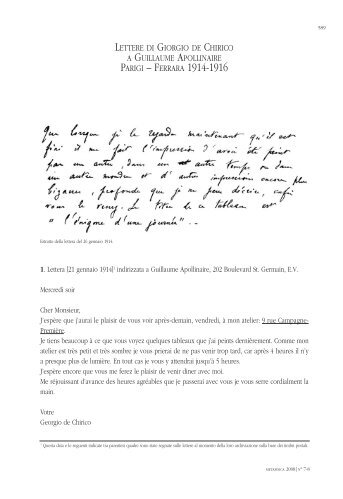 589
LETTERE DI GIORGIO DE CHIRICO
A GUILLAUME APOLLINAIRE
PARIGI – FERRARA 1914-1916
que lorsque je le regarde maintenant qu'il est
fini il me fait l'impression d'avoir été peint
par un autre, dans un autre temps ou dans
un autre monde et d'autres impression encore plus
bizarre, profonde que je ne peux décrire, enfin
vous le verrez. Le titre de ce tableau est
"l'énigme d'une journée"..
Estratto della lettera del 26 gennaio 1914.
1. Lettera [21 gennaio 1914]¹ indirizzata a Guillaume Apollinaire, 202 Boulevard St. Germain, E.V.
Mercredi soir
Cher Monsieur,
J'espère que j'aurai le plaisir de vous voir après-demain, vendredi, à mon atelier: 9 rue Campagne-
Première.
Je tiens beaucoup à ce que vous voyez quelques tableaux que j'ai peints dernièrement. Comme mon
atelier est très petit et très sombre je vous prierai de ne pas venir trop tard, car après 4 heures il n'y
a presque plus de lumière. En tout cas je vous y attendrai jusqu'à 5 heures.
J'espère encore que vous me ferez le plaisir de venir diner avec moi.
Me réjouissant d'avance des heures agréables que je passerai avec vous je vous serre cordialement la
main.
Votre
Georgio de Chirico
¹ Questa data e le seguenti indicate tra parentesi quadre sono state segnate sulle lettere al momento della loro archiviazione sulla base dei timbri postali.
METAFISICA 2008 | N° 7-8